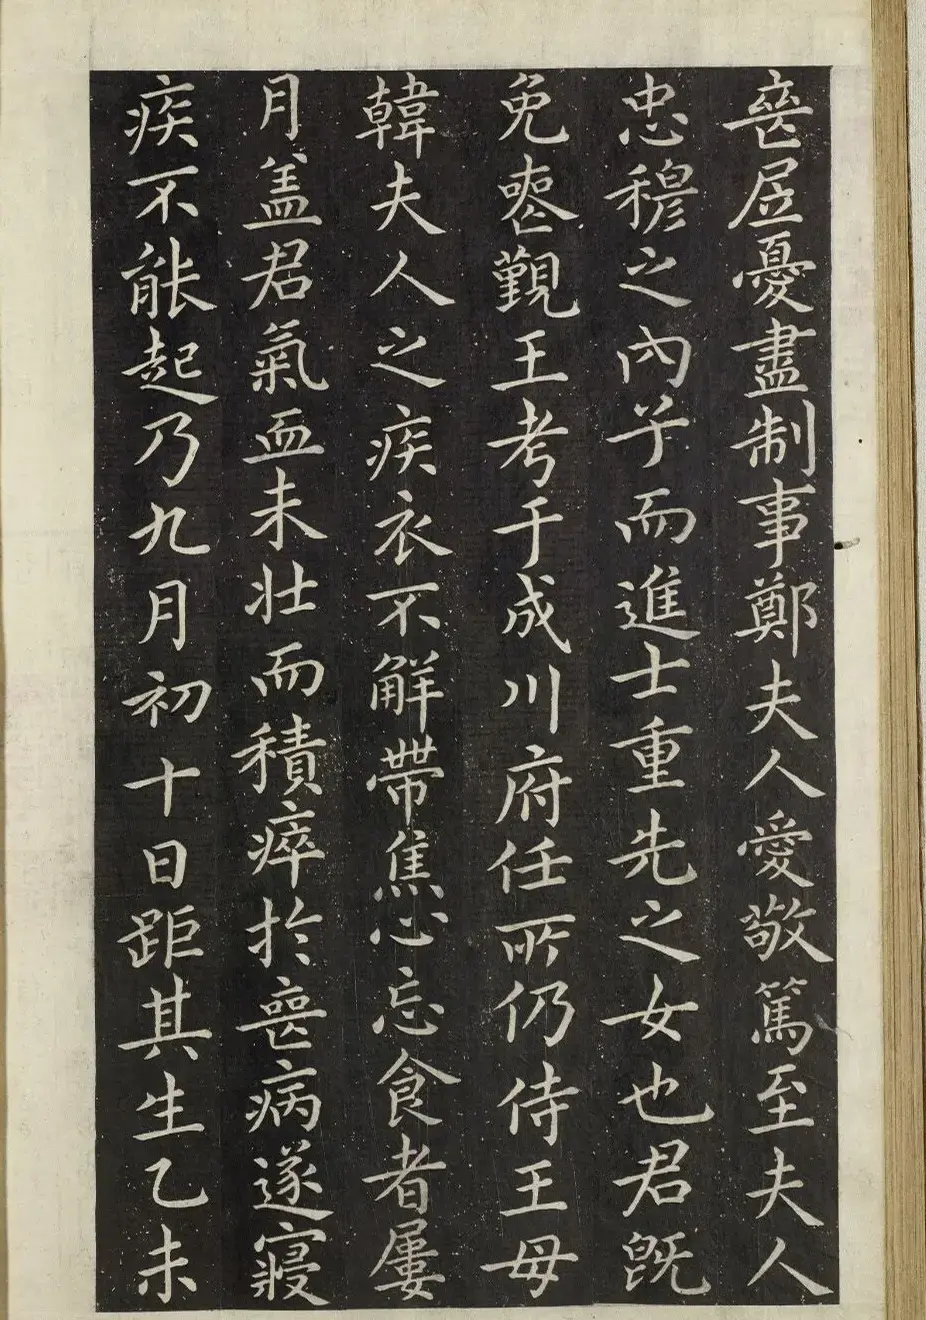 喪居憂盡制事鄭夫人愛敬篤至夫人
忠穆之內子而進士重先之女也君旣
免喪覲王考于成川府任所仍侍王母
韓夫人之疾衣不解帶焦心忘食者屢
月盖君氣血未壯而積瘁於喪病遂寢
疾不能起乃九月初十日距其生乙未